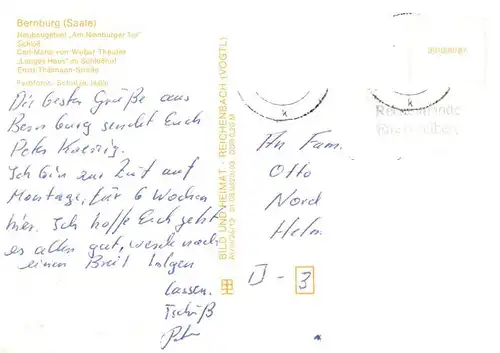 Bernburg (Saale)
Neubaugebiet „Am Nienburger Tor"
Schloß
Carl-Maria-von-Weber-Theater
„Langes Haus" im Schloßhof
Ernst-Thälmann-Straße
Die besten Grüße aus
Bernburg sendet Euch
Peter
Ich bin zur Zeit auf
Montage, für 6 Wochen
hier. Ich hoffe Euch geht
es allen gut, werde noch
einen Brief folgen
lassen.
Tschüß
Peter
BILD UND HEIMAT · REICHENBACH (VOGTL)
An Fam.
Otto
Nord
Helm
3